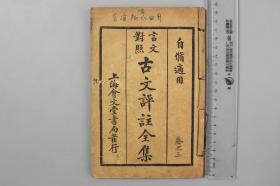 自脩適用
言文
對照
古文評註全集
卷之三
上海會文堂書局發行